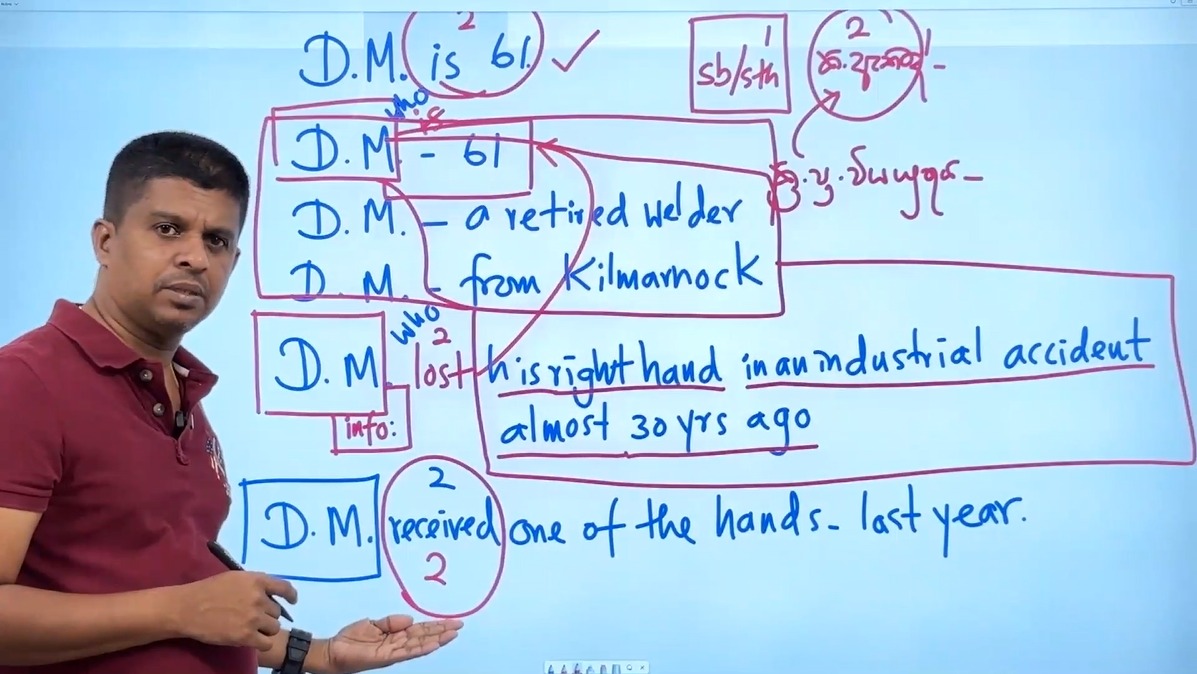 D.M. is 2 61. ✓
sb/sth 1
2
who is
D.M. - 61
D.M. - a retired welder
D.M. - from Kilmarnock
who 2
D.M. lost his right hand in an industrial accident
almost 30 yrs ago
info:
2
D.M. received one of the hands - last year.
2